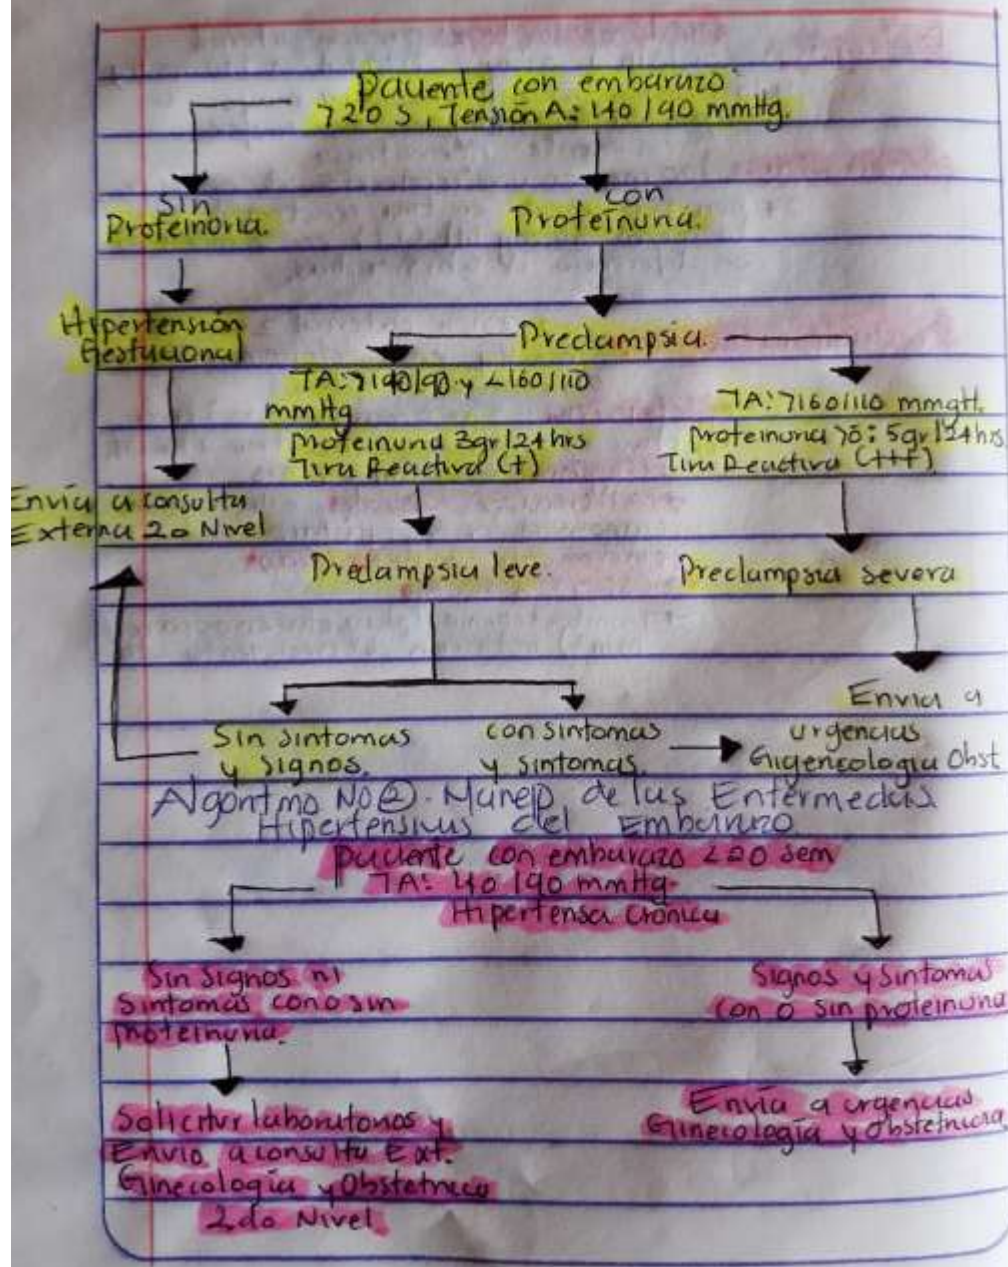 Paciente con embarazo
>20 S, Tensión A: 140/90 mmHg.
Sin
Proteinoria.
con
Proteinuria.
Hipertensión
Gestacional
Preclampsia.
TA: >140/90 y <160/110
mmHg
TA: >160/110 mmgH.
Proteinuria 3gr/24hrs
Tira Reactiva (+)
Proteinuria >ó: 5gr/24hrs
Tira Reactiva (+++)
Envia a consulta
Externa 2o Nivel
Preclampsia leve.
Preclampsia severa
Sin sintomas
y signos.
con sintomas
y sintomas.
Envia a
urgencias
Gigencologia Obst
Algoritmo No 2. Manejo de las Enfermedas
Hipertensivas del Embarazo
paciente con embarazo <20 sem
TA: 140/90 mmHg.
Hipertensa Crónica
Sin Signos ni
Sintomas con o sin
proteinuria.
Signos y Sintomas
Con o Sin proteinuria
Solicitar laboratorios y
Envio a consulta Ext.
Ginecologia y Obstetricia
2do Nivel
Envia a urgencias
Ginecologia y Obstetricia